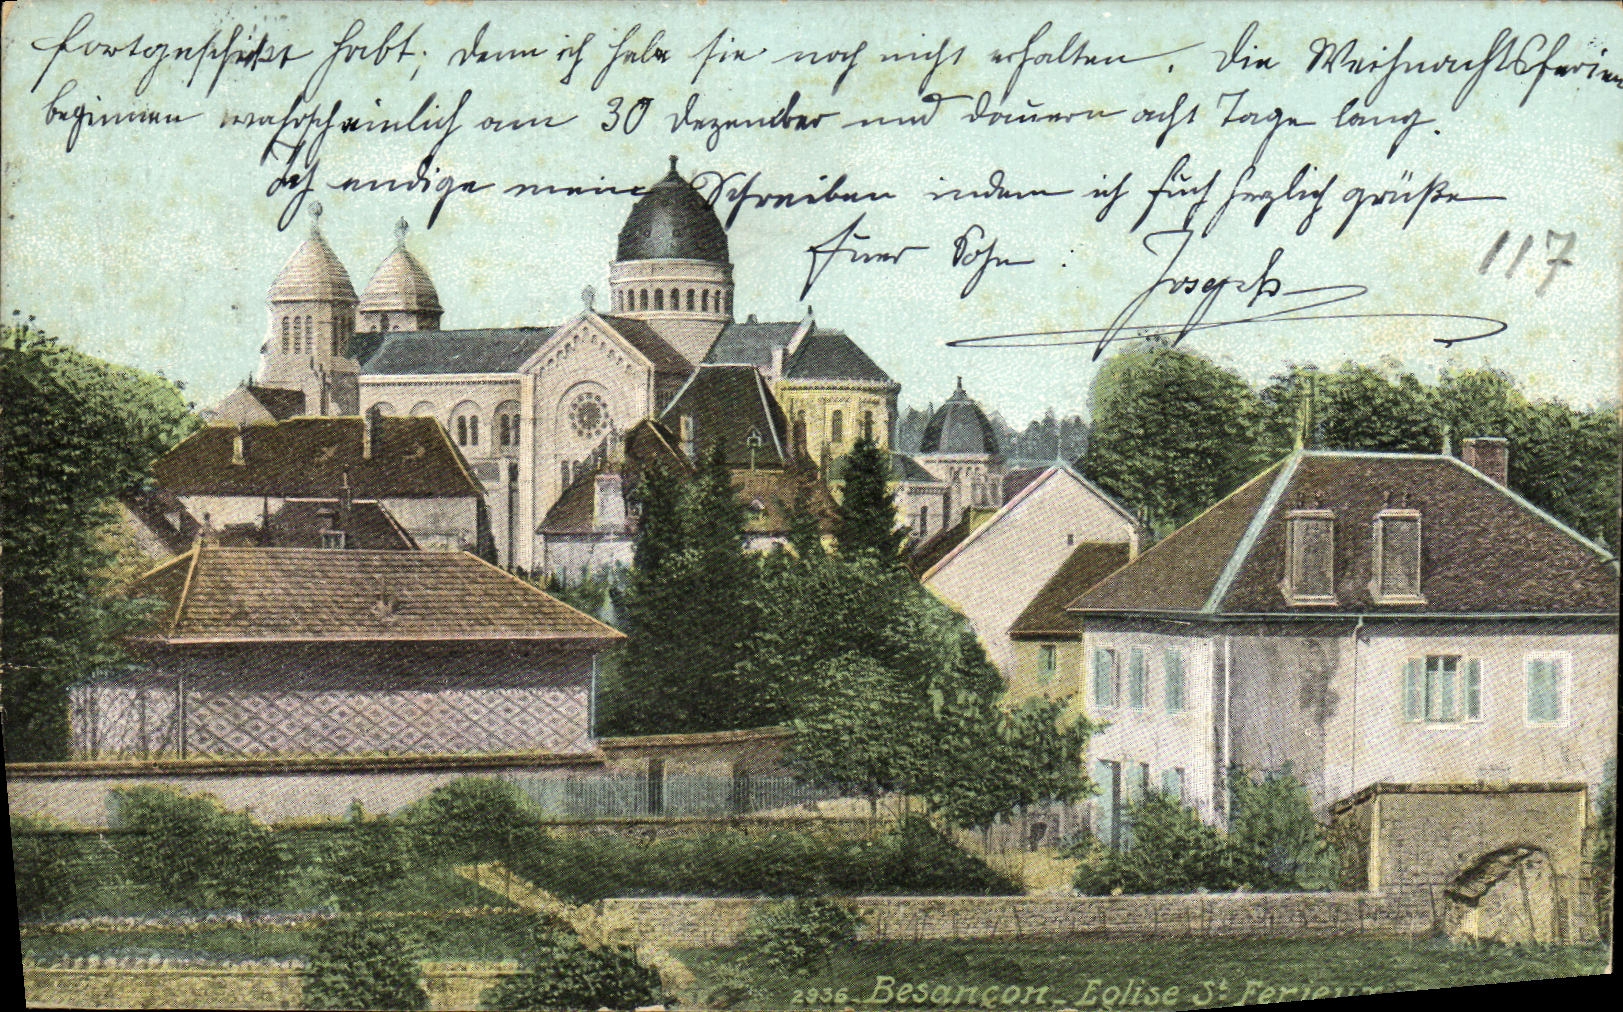 fortgeschickt habt; denn ich habe sie noch nicht erhalten. Die Weihnachtsferien
beginnen wahrscheinlich am 30 Dezember und dauern acht Tage lang.
Ich endige mein Schreiben indem ich Euch herzlich grüße
Euer Sohn : Joseph
117
2936 - Besançon - Eglise St Ferjeux